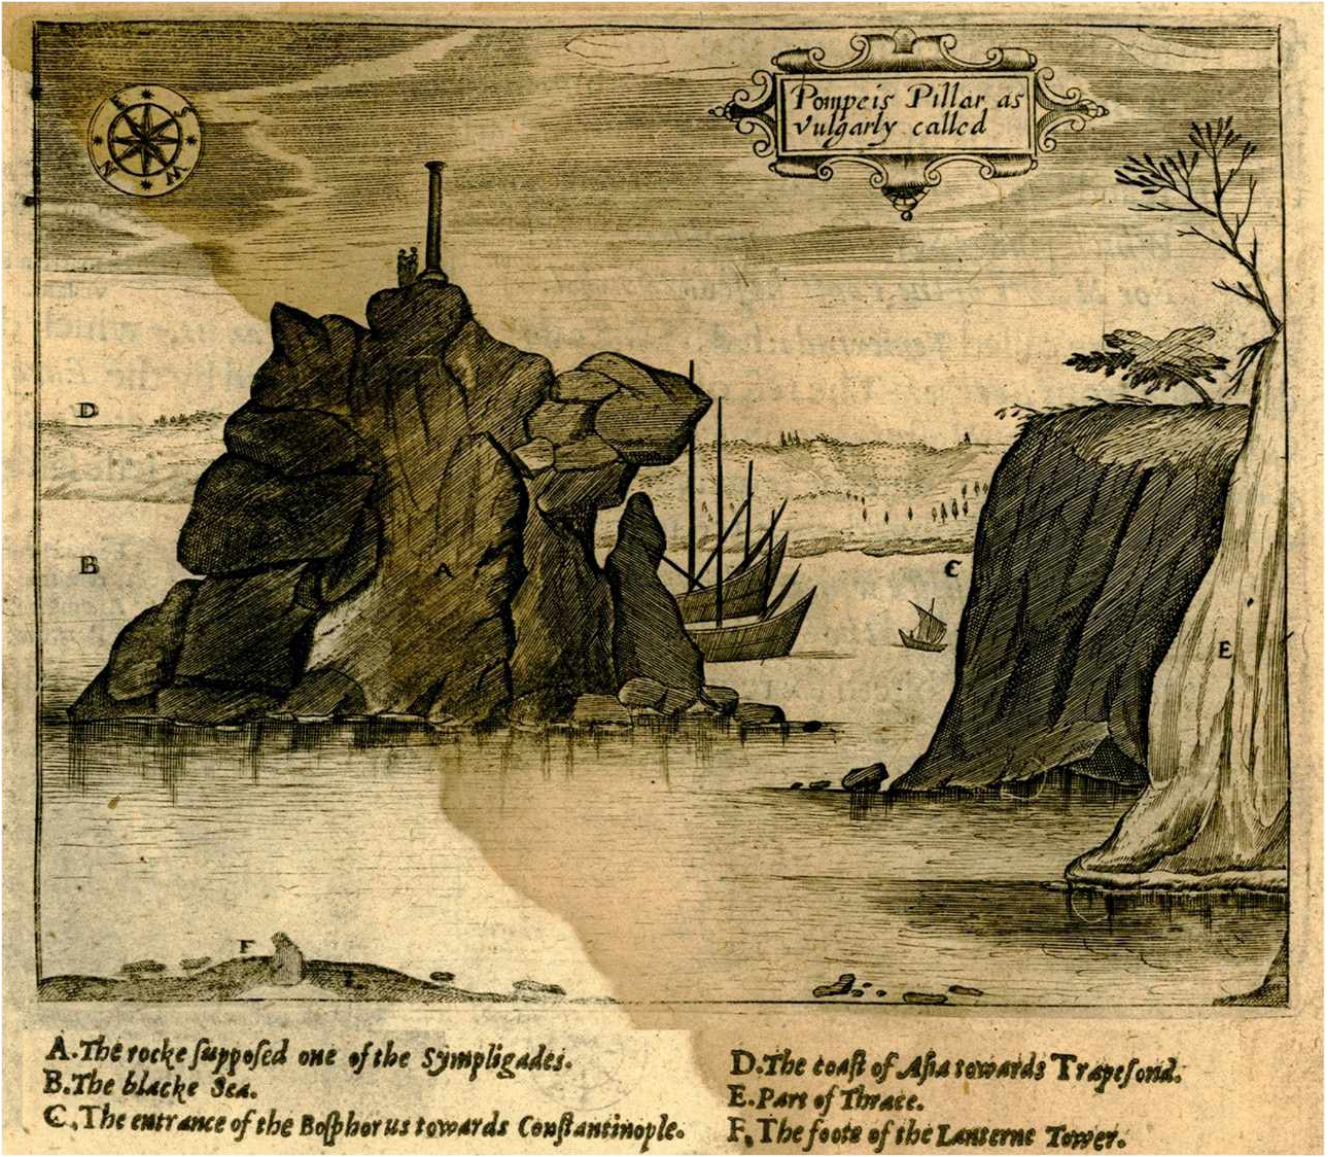 E
S
N
W
Pompeis Pillar as
vulgarly called
D
B
A
C
E
F
A. The rocke ſuppoſed one of the Sympligades.
B. The blacke Sea.
C. The entrance of the Boſphorus towards Conſtantinople.
D. The coaſt of Aſia towards Trapeſond.
E. Part of Thrace.
F. The foote of the Lanterne Tower.